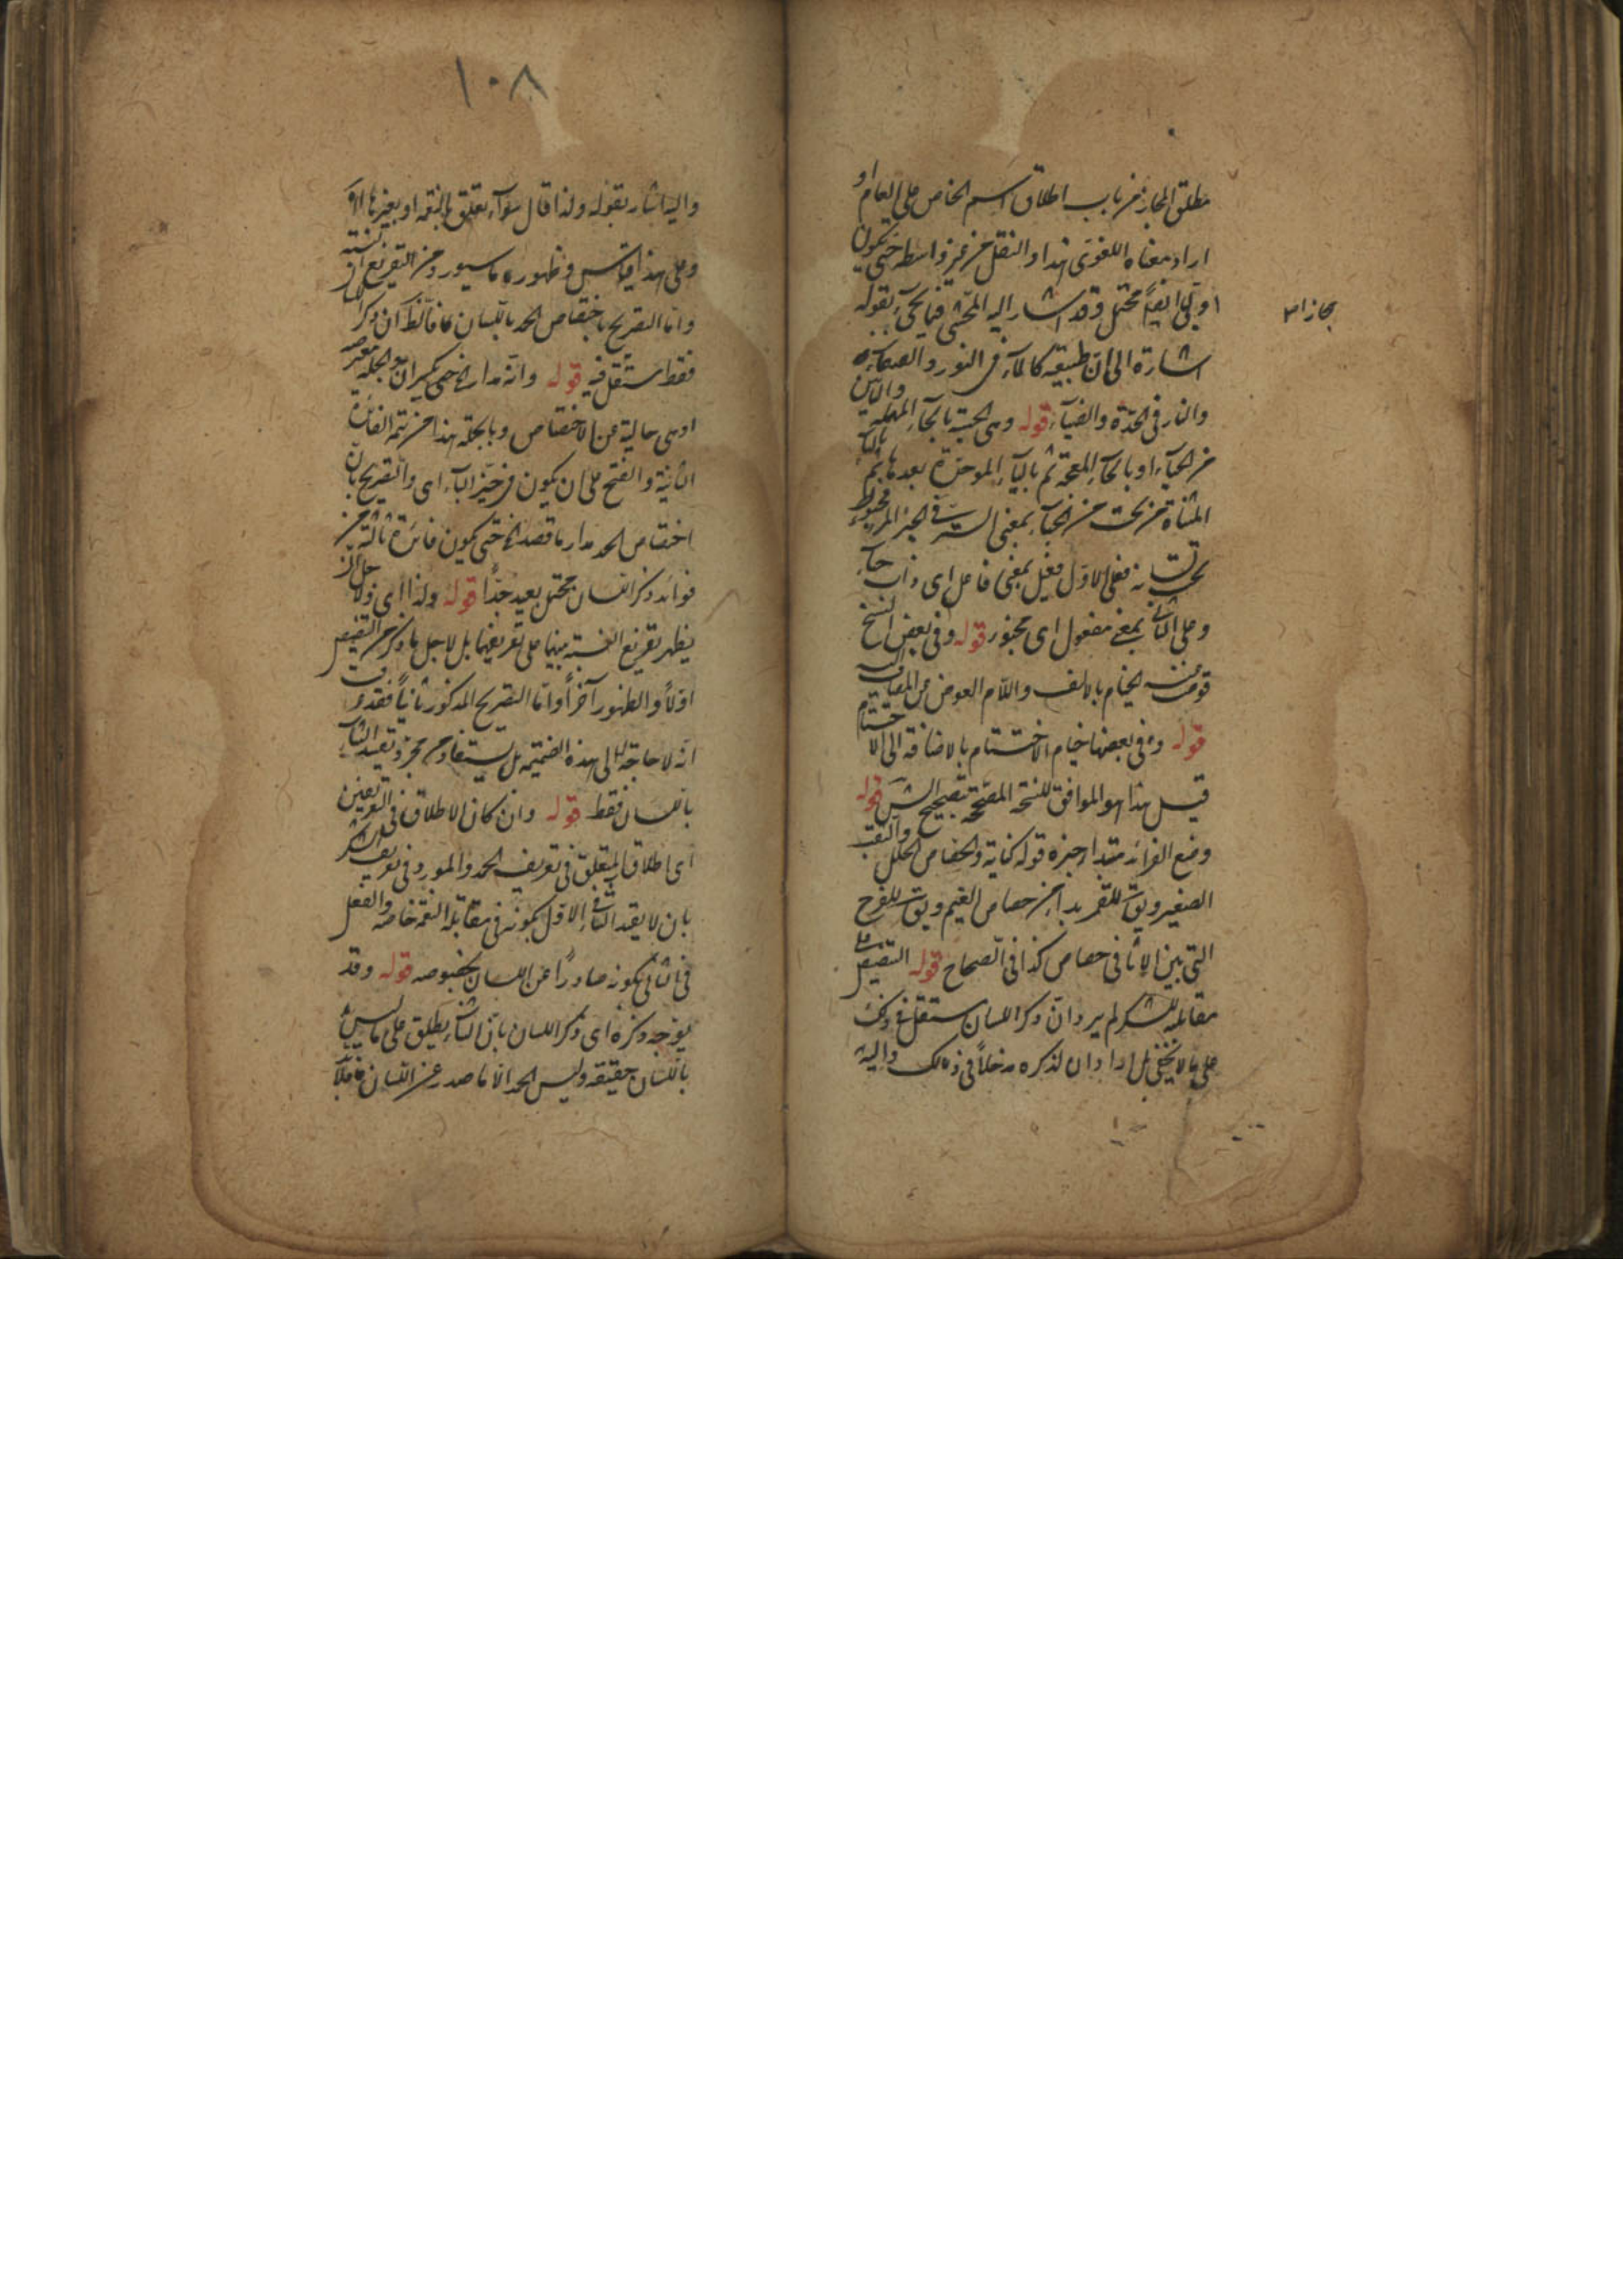 مطلق المجاز من باب اطلاق اسم الخاص على العام او
اراد معناه اللغوى هذا والنقل من غير واسطة حتى يكون
اوليا ايضا محتمل وقد اشار اليه المحشى فيما يجىء بقوله
مجازا
اشارة الى ان طبيعته كالماء فى النور والصفاء
والنار فى الحدة والضياء قوله وهى الحبية بالحاء المهملة
من الحباء او بالخاء المعجمة ثم بالباء الموحدة بعدها ثم
المثناة من تحت من الخباء بمعنى الستر فى الخبر
فعلى الاول فعيل بمعنى فاعل اى ذات حباء
وعلى الثانى بمعنى مفعول اى مخبوء قوله وفى بعض النسخ
الختام بالالف واللام العوض عن المضاف اليه
قوله وفى بعضها ختام الاختتام بالاضافة الى الاختتام
قيل هذا هو الموافق للنسخة المصححة بتصحيح الش قوله
وضع الفرائد مبتدا خبره قوله كناية والخصاص الخلل والثقب
الصغير ويق للقمر بدا من خصاص الغيم ويق للفرج
التى بين الاثافى خصاص كذا فى الصحاح قوله التنصيص على
مقابلته للشكر لم يرد ان ذكر اللسان مستقل فى ذلك
على ما لا يخفى بل اراد ان لذكره مدخلا فى ذلك واليه
١٠٨
واليه اشار بقوله ولذا قال سواء تعلق بالنعمة او بغيرها
وعلى هذا قياس وظهور ما سيورد من التفريع
واما التصريح باختصاص الحمد باللسان فالظ ان ذكر اللسان
فقط مستقل فيه قوله وانه مدار الخ حتى يكسر ان والجملة معترضة
او هى حالية عن الاختصاص وبالجملة هذا من تتمة الفائدة
الثانية والفتح على ان يكون فى حيز الباء اى والتصريح بان
اختصاص الحمد مدار ما قصد الخ حتى يكون فائدة ثالثة من
فوائد ذكر اللسان محتمل بعيد جدا قوله ولذا اى ولاجل ان
يظهر تفريع النسبة بينهما على تعريفهما بل لاجل ما ذكر من التنصيص
اولا والظهور آخرا واما التصريح المذكور ثانيا فقد عرفت
انه لا حاجة له الى هذه الضميمة بل يستفاد من مجرد تقييد الثناء
باللسان فقط قوله وان كان الاطلاق فى التعريفين
اى اطلاق المتعلق فى تعريف الحمد والمورد فى تعريف الشكر
بان لا يقيد الثناء فى الاول بكونه فى مقابلة النعمة خاصة والفعل
فى الثانى بكونه صادرا عن اللسان بخصوصه قوله وقد
يوجه ذكره اى ذكر اللسان بان الثناء يطلق على ما ليس
باللسان حقيقة وليس الحمد الا ما صدر عن اللسان